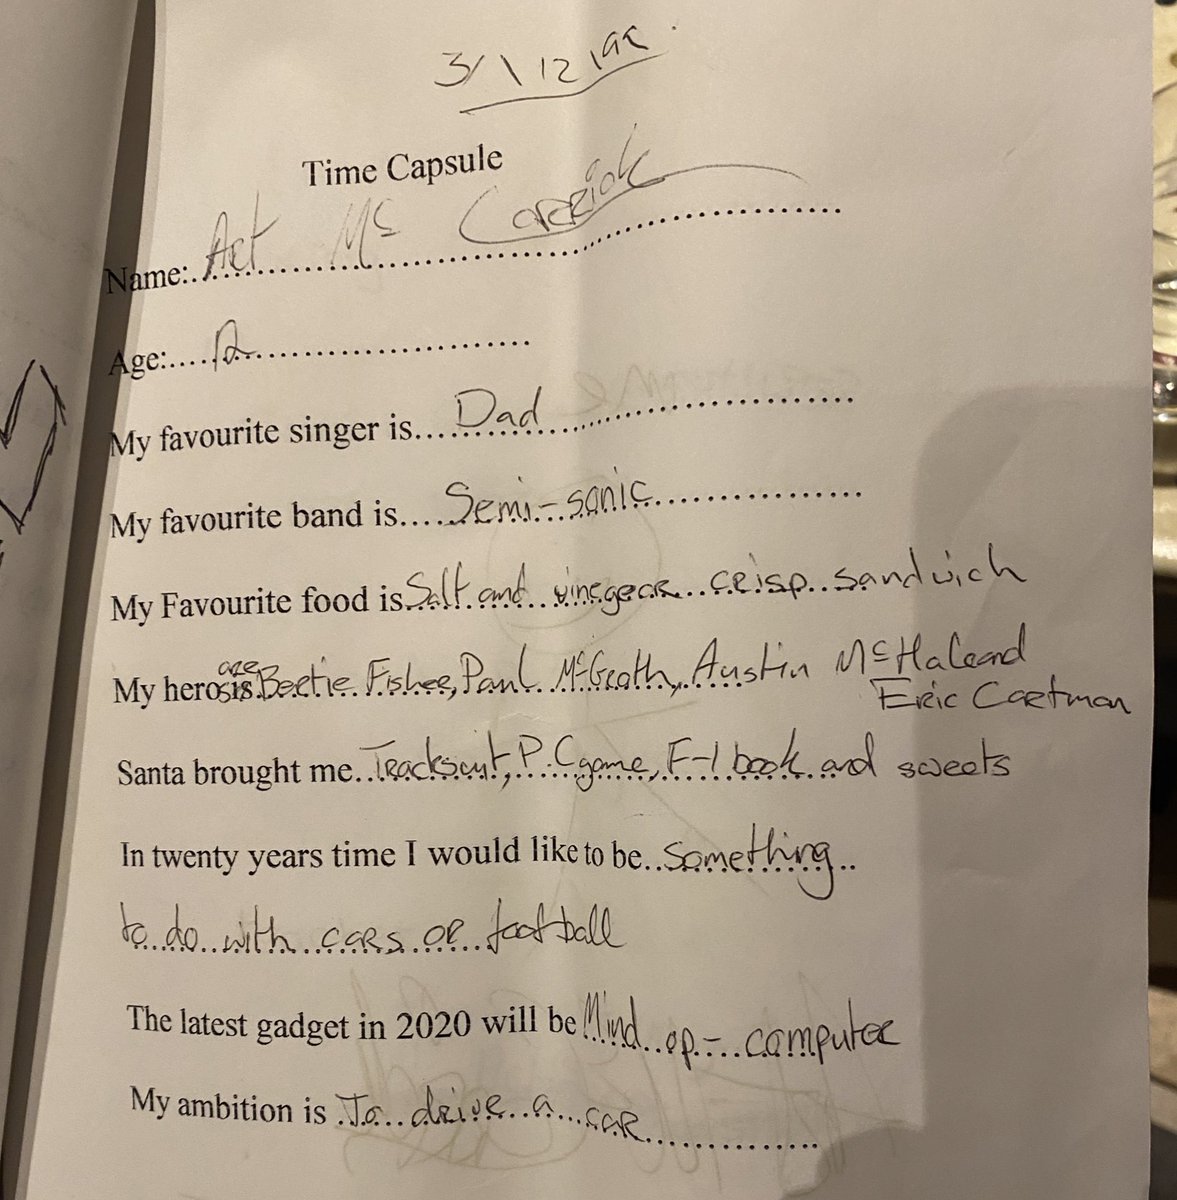 31/12/99.
Time Capsule
Name: Art Mc Carrick
Age: 12
My favourite singer is Dad
My favourite band is Semi-sonic
My Favourite food is Salt and vinegear crisp sandwich
are
My heros is Bertie Fisher, Paul McGrath, Austin McHale and
Eric Cartman
Santa brought me Tracksuit, P.C game, F-1 book and sweets
In twenty years time I would like to be something
to do with cars or football
The latest gadget in 2020 will be Mind op-computer
My ambition is To drive a car